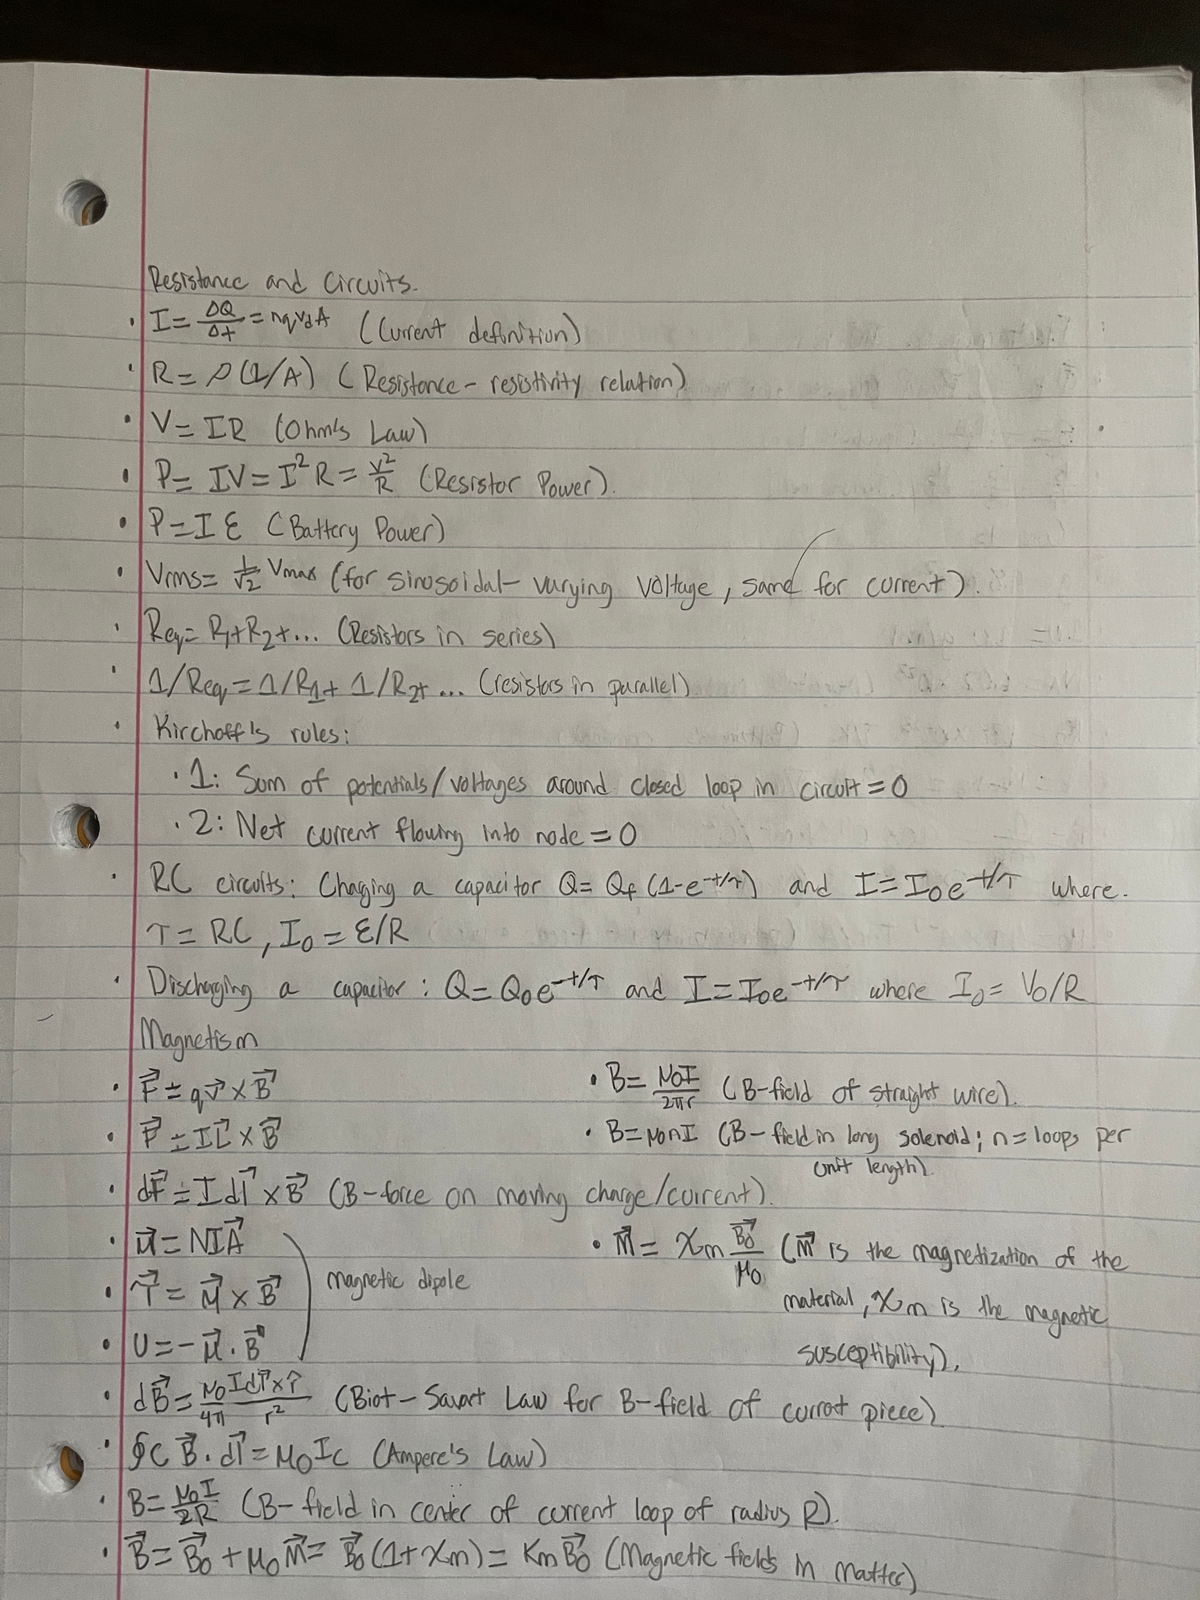 Resistance and Circuits.
• I = ΔQ/Δt = nqvdA (Current definition)
• R = ρ(L/A) (Resistance - resistivity relation)
• V = IR (Ohm's Law)
• P = IV = I²R = V²/R (Resistor Power).
• P = I ε (Battery Power)
• Vrms = 1/√2 Vmax (for sinusoidal - varying voltage, same for current).
• Req = R1+R2+... (Resistors in series)
• 1/Req = 1/R1 + 1/R2+ ... (resistors in parallel)
• Kirchoff's rules:
• 1: Sum of potentials/voltages around closed loop in circuit = 0
• 2: Net current flowing into node = 0
• RC circuits: Chaging a capacitor Q = Qf (1-e^-t/τ) and I = I0e^-t/τ where.
τ = RC, I0 = ε/R
• Discharging a capacitor: Q = Q0e^-t/τ and I = I0e^-t/τ where I0 = V0/R
Magnetism
• F⃗ = qv⃗ × B⃗
• F⃗ = IL⃗ × B⃗
• dF⃗ = I dl⃗ × B⃗ (B-force on moving charge/current).
• μ⃗ = NIA⃗
• τ⃗ = μ⃗ × B⃗
• U = -μ⃗ · B⃗
magnetic dipole
• B = μ0I/2πr (B-field of straight wire).
• B = μ0nI (B-field in long solenoid; n = loops per
unit length).
• M⃗ = χm B⃗0/μ0 (M⃗ is the magnetization of the
material, χm is the magnetic
susceptibility).
• dB⃗ = μ0/4π Idl⃗×r̂/r² (Biot-Savart Law for B-field of current piece)
• ∮C B⃗ · dl⃗ = μ0Ic (Ampere's Law)
• B = μ0I/2R (B-field in center of current loop of radius R).
• B⃗ = B⃗0 + μ0M⃗ = B⃗0(1+χm) = KmB⃗0 (Magnetic fields in matter)